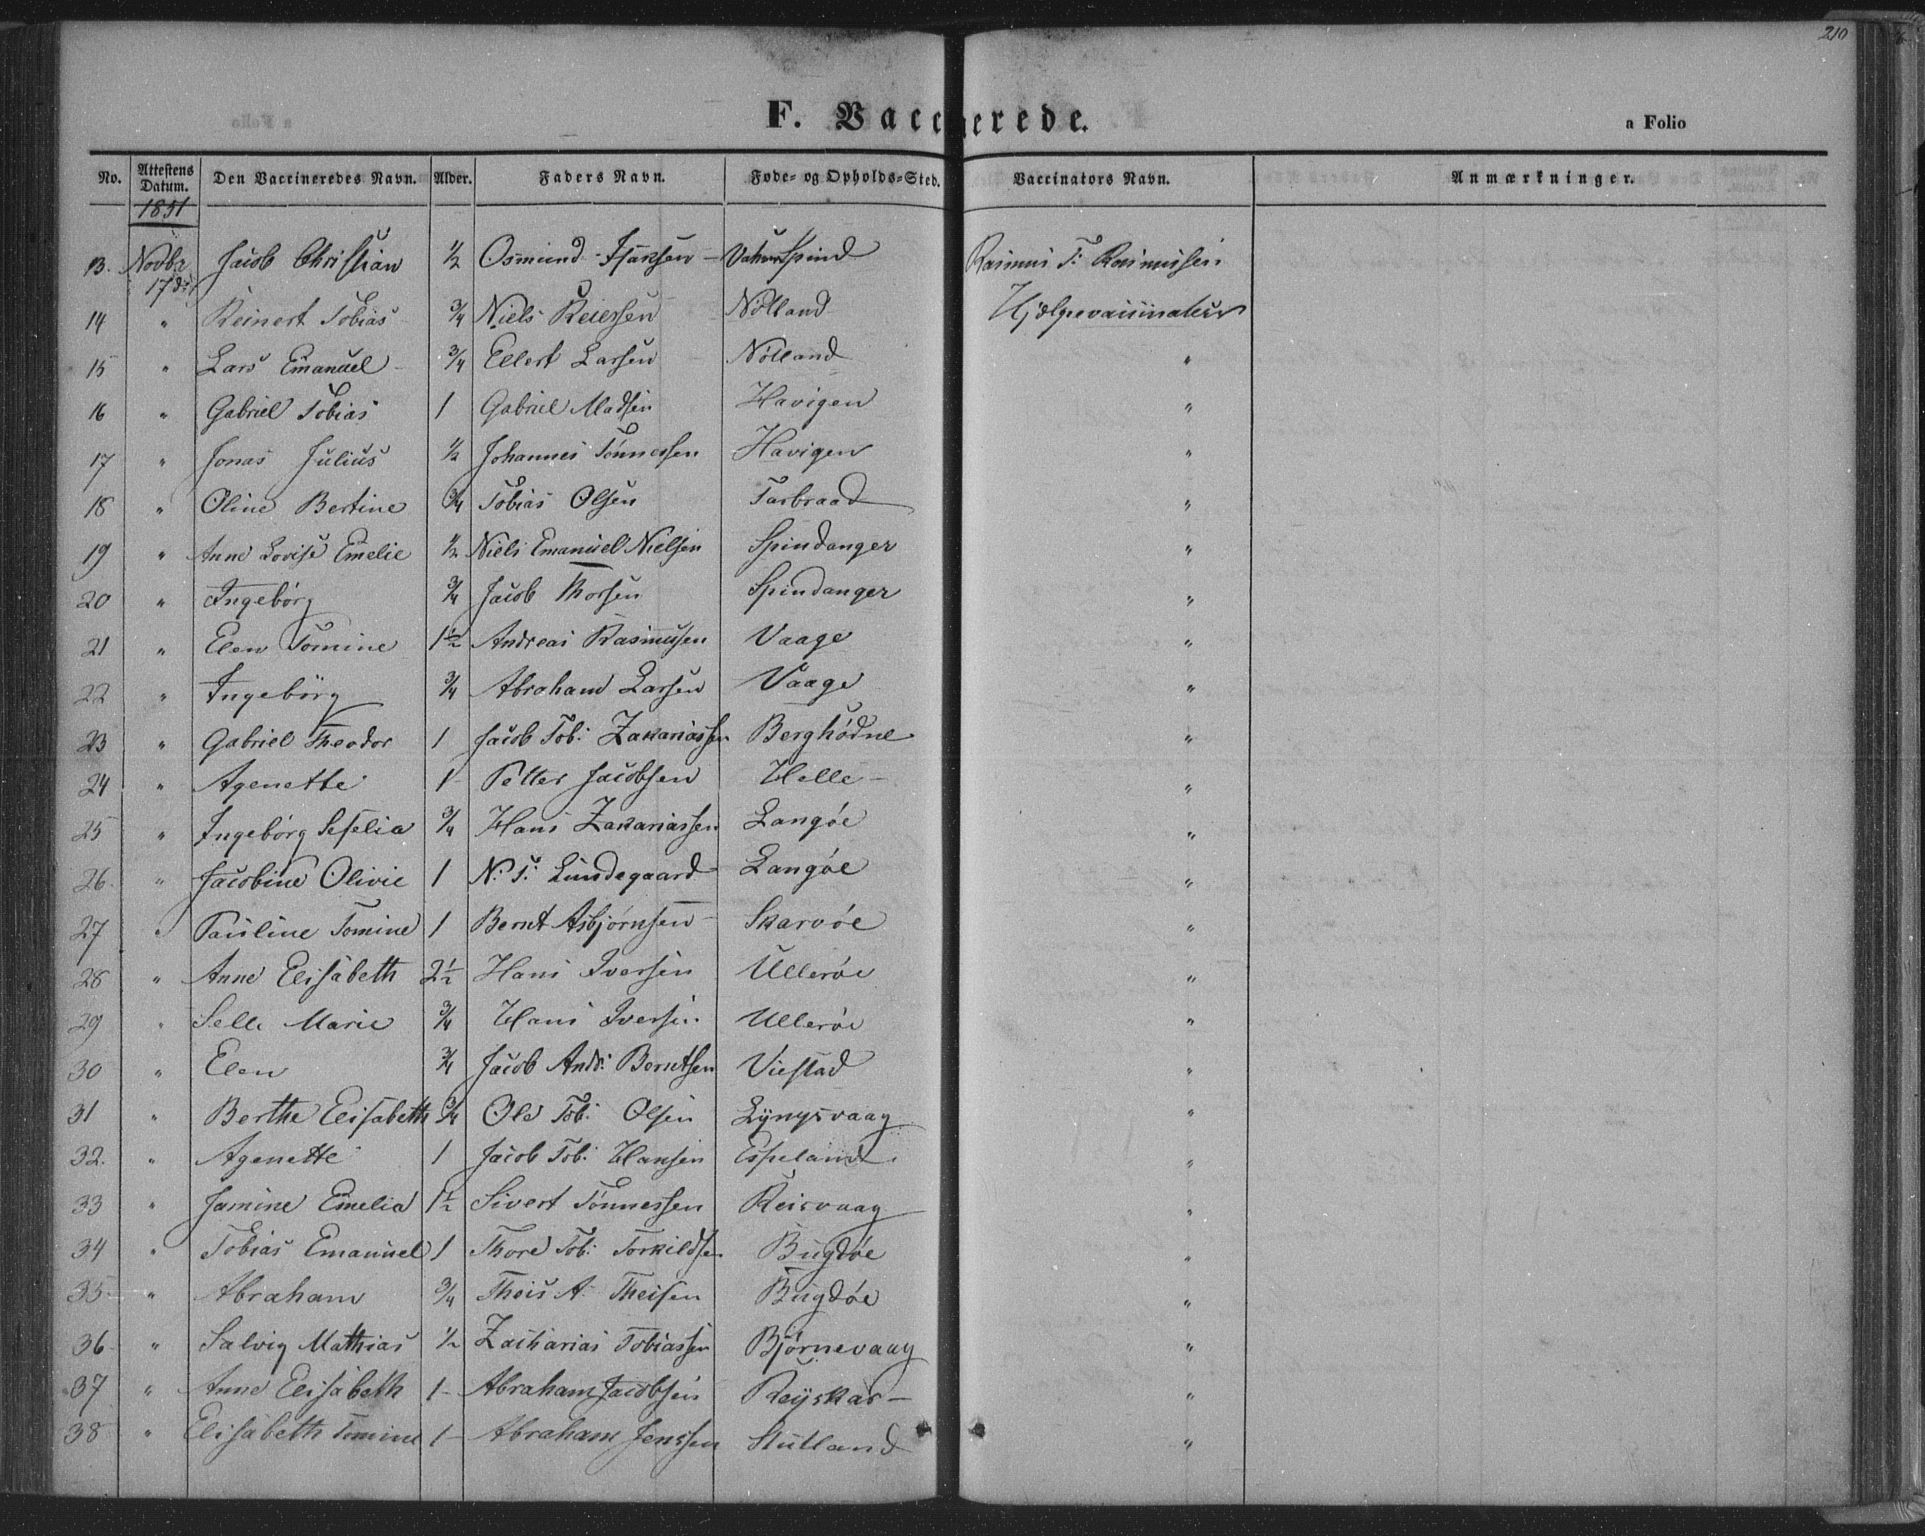 210
F. Vaccinerede.
a Folio
No. Attestens Datum. Den Vaccineredes Navn. Alder. Faders Navn. Føde- og Opholds-Sted. Vaccinators Navn. Anmærkninger.
1851
13. Novbr 17de Jacob Christian ½ Osmund Isaksen - Spind Rasmus T. Rasmussen
14 " Reinert Tobias ¾ Niels Reiersen Nölland Hjælpevaccinateur
15 " Lars Emanuel ¾ Ellert Larsen Nölland "
16 " Gabriel Tobias 1 Gabriel Madsen Havigen "
17 " Jonas Julius ½ Johannes Tönnessen Havigen "
18 " Oline Bertine ¾ Tobias Olsen Farbraad "
19 " Anne Lovise Emelie ½ Niels Emanuel Nielsen Spindanger "
20 " Ingebörg ¾ Jacob Thorsen Spindanger "
21 " Elen Tomine 1½ Andreas Rasmusen Vaage "
22 " Ingebörg ¾ Abraham Larsen Vaage "
23 " Gabriel Theodor 1 Jacob Tob: Zakariassen Berghødne "
24 " Agenette 1 - Petter Jacobsen Helle - "
25 " Ingebörg Sefelia ¾ Hans Zakariassen Langøe "
26. " Jacobine Olivie 1 N. T. Lundegaard Langøe "
27 " Pauline Tomine 1 Bernt Asbjørnsen - Skarvøe "
28 " Anne Elisabeth 2½ Hans Iversen Ullerøe "
29 " Selle Marie ¾ Hans Iversen Ullerøe "
30 " Elen ¾ Jacob Andr: Berntsen Viestad "
31 " Berthe Elisabeth ¾ Ole Tob: Olsen Lyngsvaag "
32. " Agenette 1 Jacob Tob: Hansen Espeland "
33 " Jamine Emelia 1½ Sivert Tönnessen Reisvaag "
34 " Tobias Emanuel 1 Thore Tob: Torkildsen Bugdøe "
35 " Abraham ¾ Theis A. Theisen Bugdøe "
36 " Salvig Mathias ½ Zacharias Tobiassen Bjørnevaag "
37 " Anne Elisabeth 1 - Abraham Jacobsen Reyskar - "
38 " Elisabeth Tomine 1 - Abraham Jenssen Stutland "